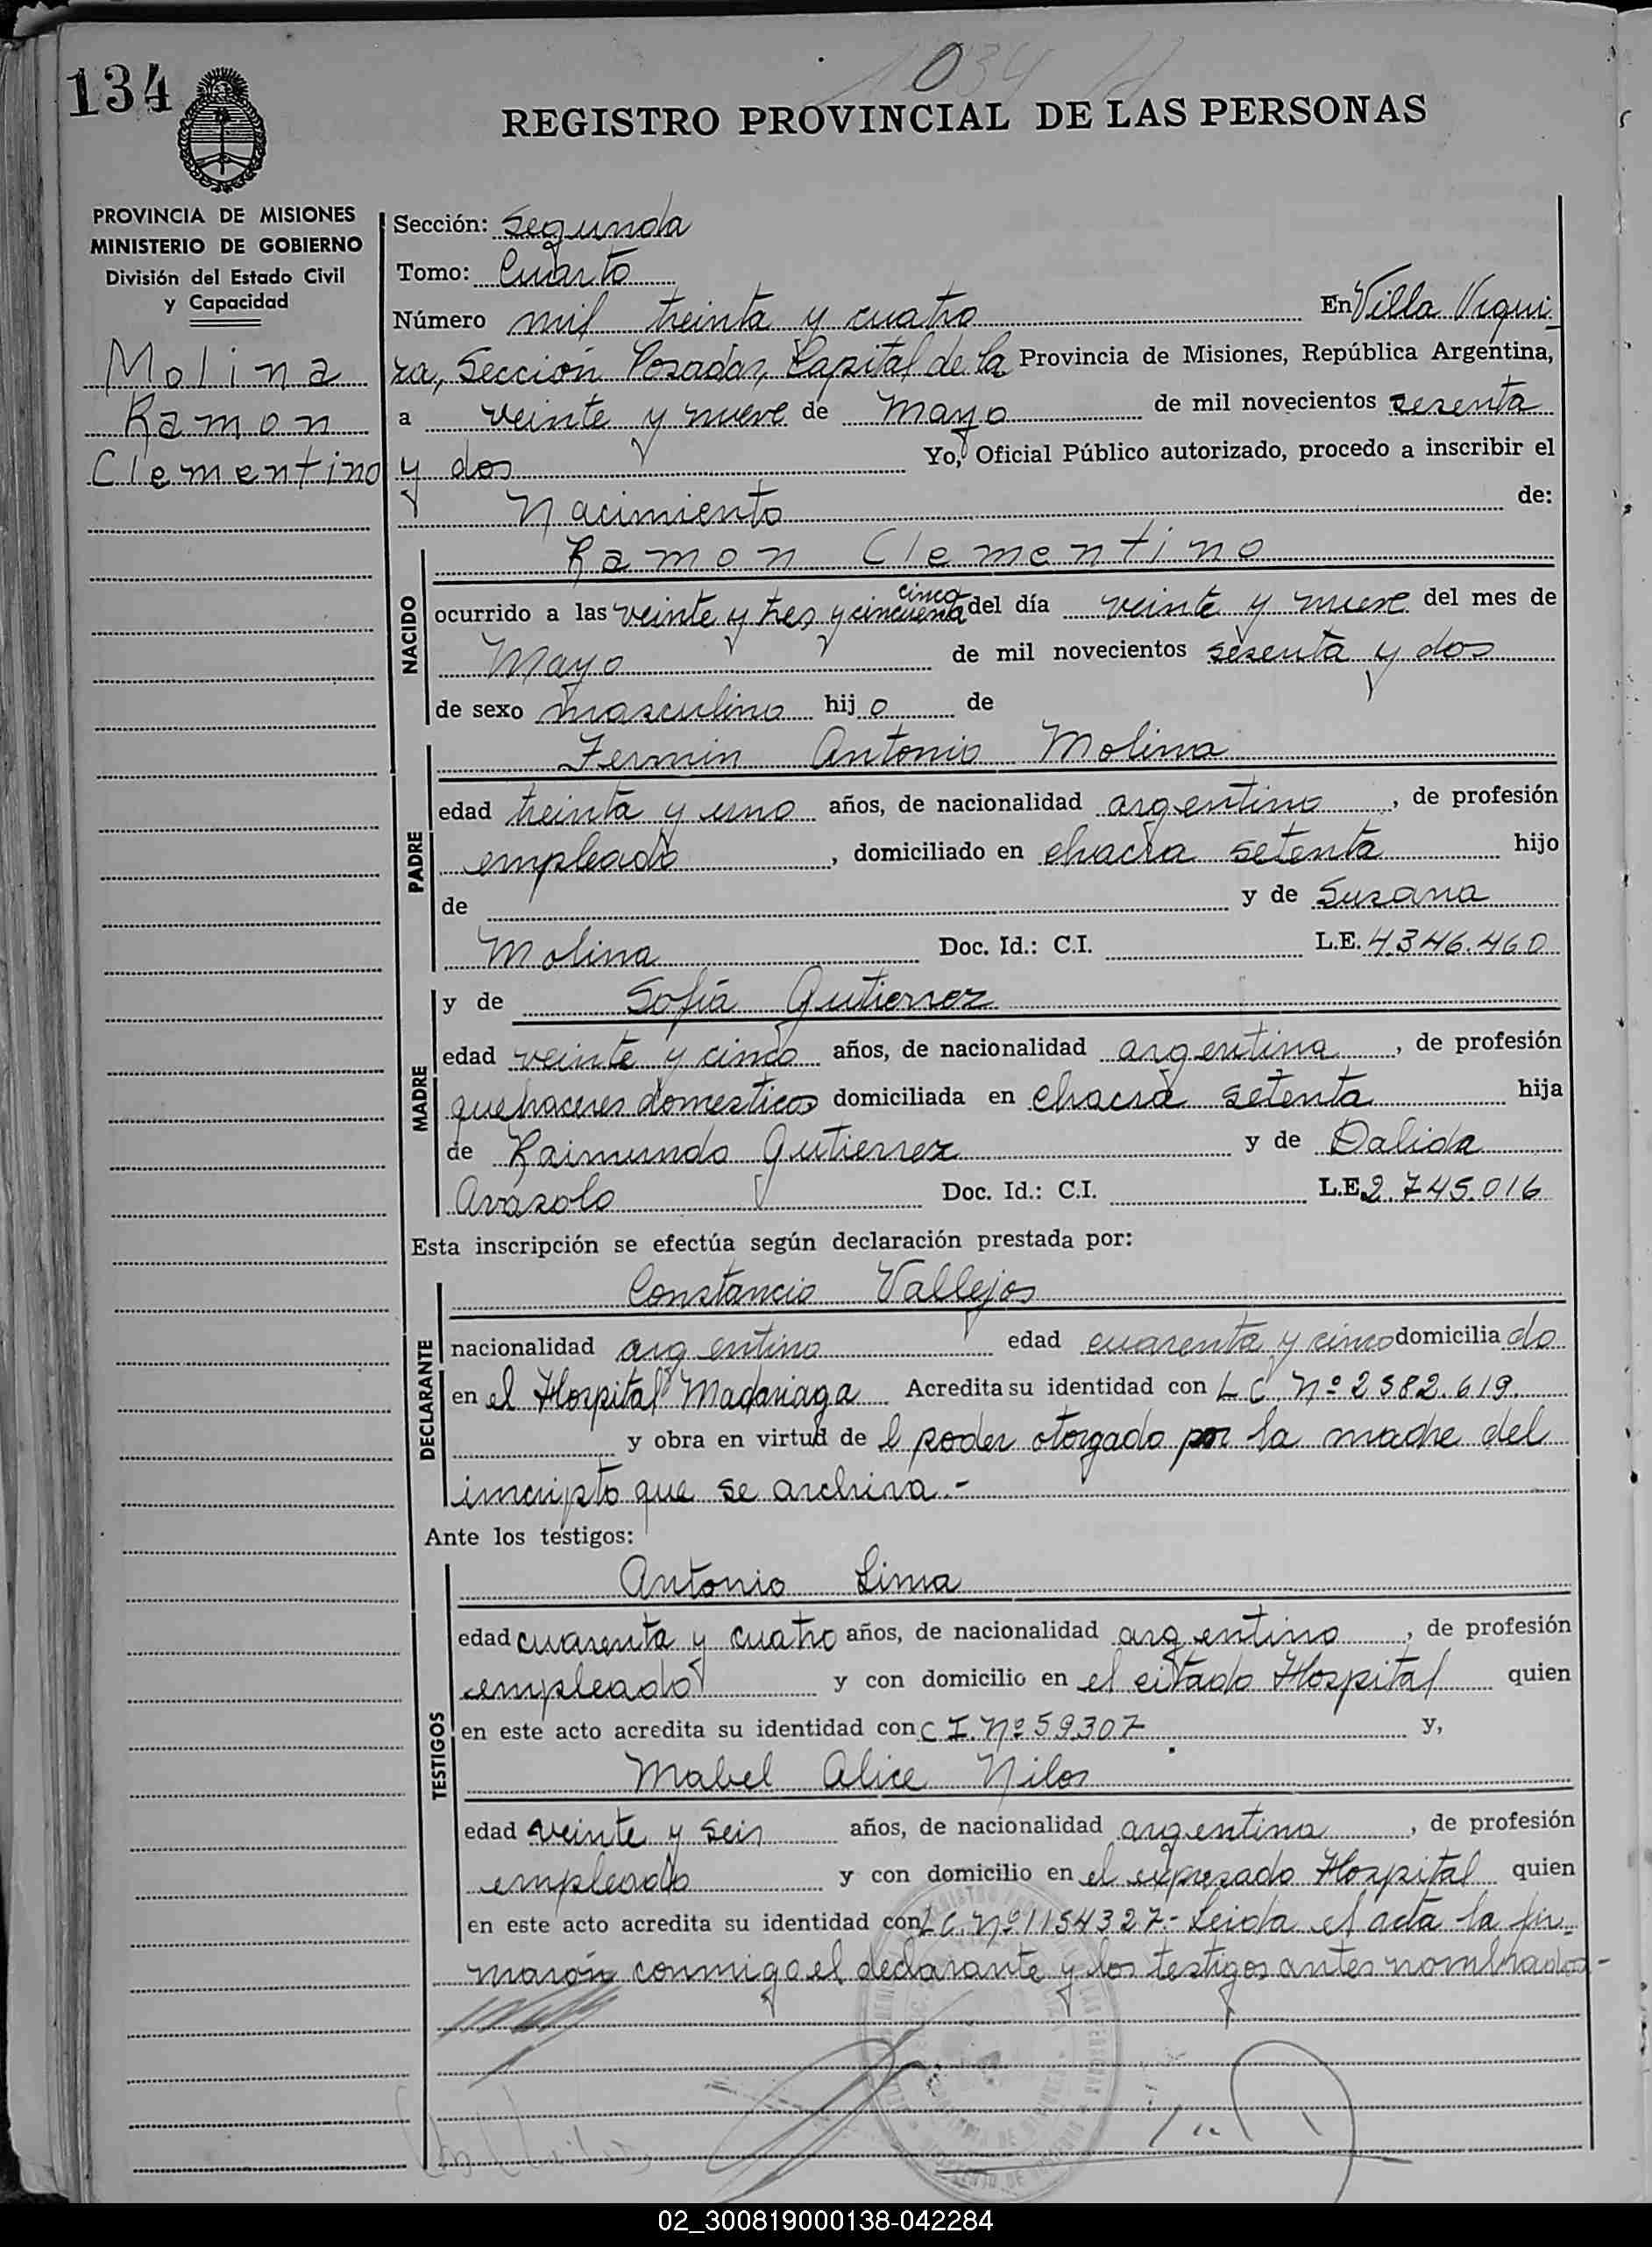 134
1034
REGISTRO PROVINCIAL DE LAS PERSONAS
PROVINCIA DE MISIONES
MINISTERIO DE GOBIERNO
División del Estado Civil
y Capacidad
Molina
Ramon
Clementino
Sección: Segunda
Tomo: Cuarto
Número mil treinta y cuatro En Villa Urqui-
za, Sección Posadas, Capital de la Provincia de Misiones, República Argentina,
a veinte y nueve de Mayo de mil novecientos sesenta
y dos Yo, Oficial Público autorizado, procedo a inscribir el
Nacimiento de:
NACIDO
Ramon Clementino
cinco
ocurrido a las veinte y tres y cincuenta del día veinte y nueve del mes de
Mayo de mil novecientos sesenta y dos
de sexo masculino hijo de
PADRE
Fermin Antonio Molina
edad treinta y uno años, de nacionalidad argentino, de profesión
empleado, domiciliado en chacra setenta hijo
de y de Susana
Molina Doc. Id.: C.I. L.E. 4.346.460
MADRE
y de Sofia Gutierrez
edad veinte y cinco años, de nacionalidad argentina, de profesión
quehaceres domesticos domiciliada en chacra setenta hija
de Raimundo Gutierrez y de Dalida
Doc. Id.: C.I. L.E. 2.745.016
Esta inscripción se efectúa según declaración prestada por:
DECLARANTE
Constancio Vallejos
nacionalidad argentino edad cuarenta y cinco domiciliado
en el Hospital Madariaga Acredita su identidad con L C Nº 2582.619.
y obra en virtud de l poder otorgado por la madre del
inscripto que se archiva.-
Ante los testigos:
TESTIGOS
Antonio Lima
edad cuarenta y cuatro años, de nacionalidad argentino, de profesión
empleado y con domicilio en el citado Hospital quien
en este acto acredita su identidad con C I. Nº 59307 y,
Mabel Alice Nilos
edad veinte y seis años, de nacionalidad argentina, de profesión
empleado y con domicilio en el expresado Hospital quien
en este acto acredita su identidad con L C. Nº 1154327.- Leida el acta la fir-
maron conmigo el declarante y los testigos antes nombrados-
02_300819000138-042284